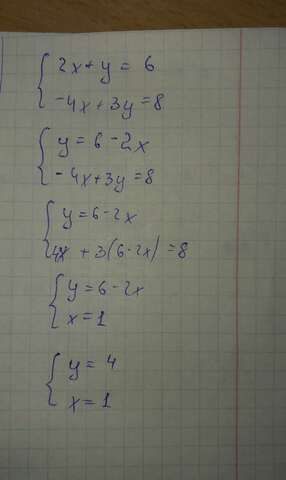 2x + y = 6
-4x + 3y = 8
y = 6 - 2x
-4x + 3y = 8
y = 6 - 2x
4x + 3(6 - 2x) = 8
y = 6 - 2x
x = 1
y = 4
x = 1